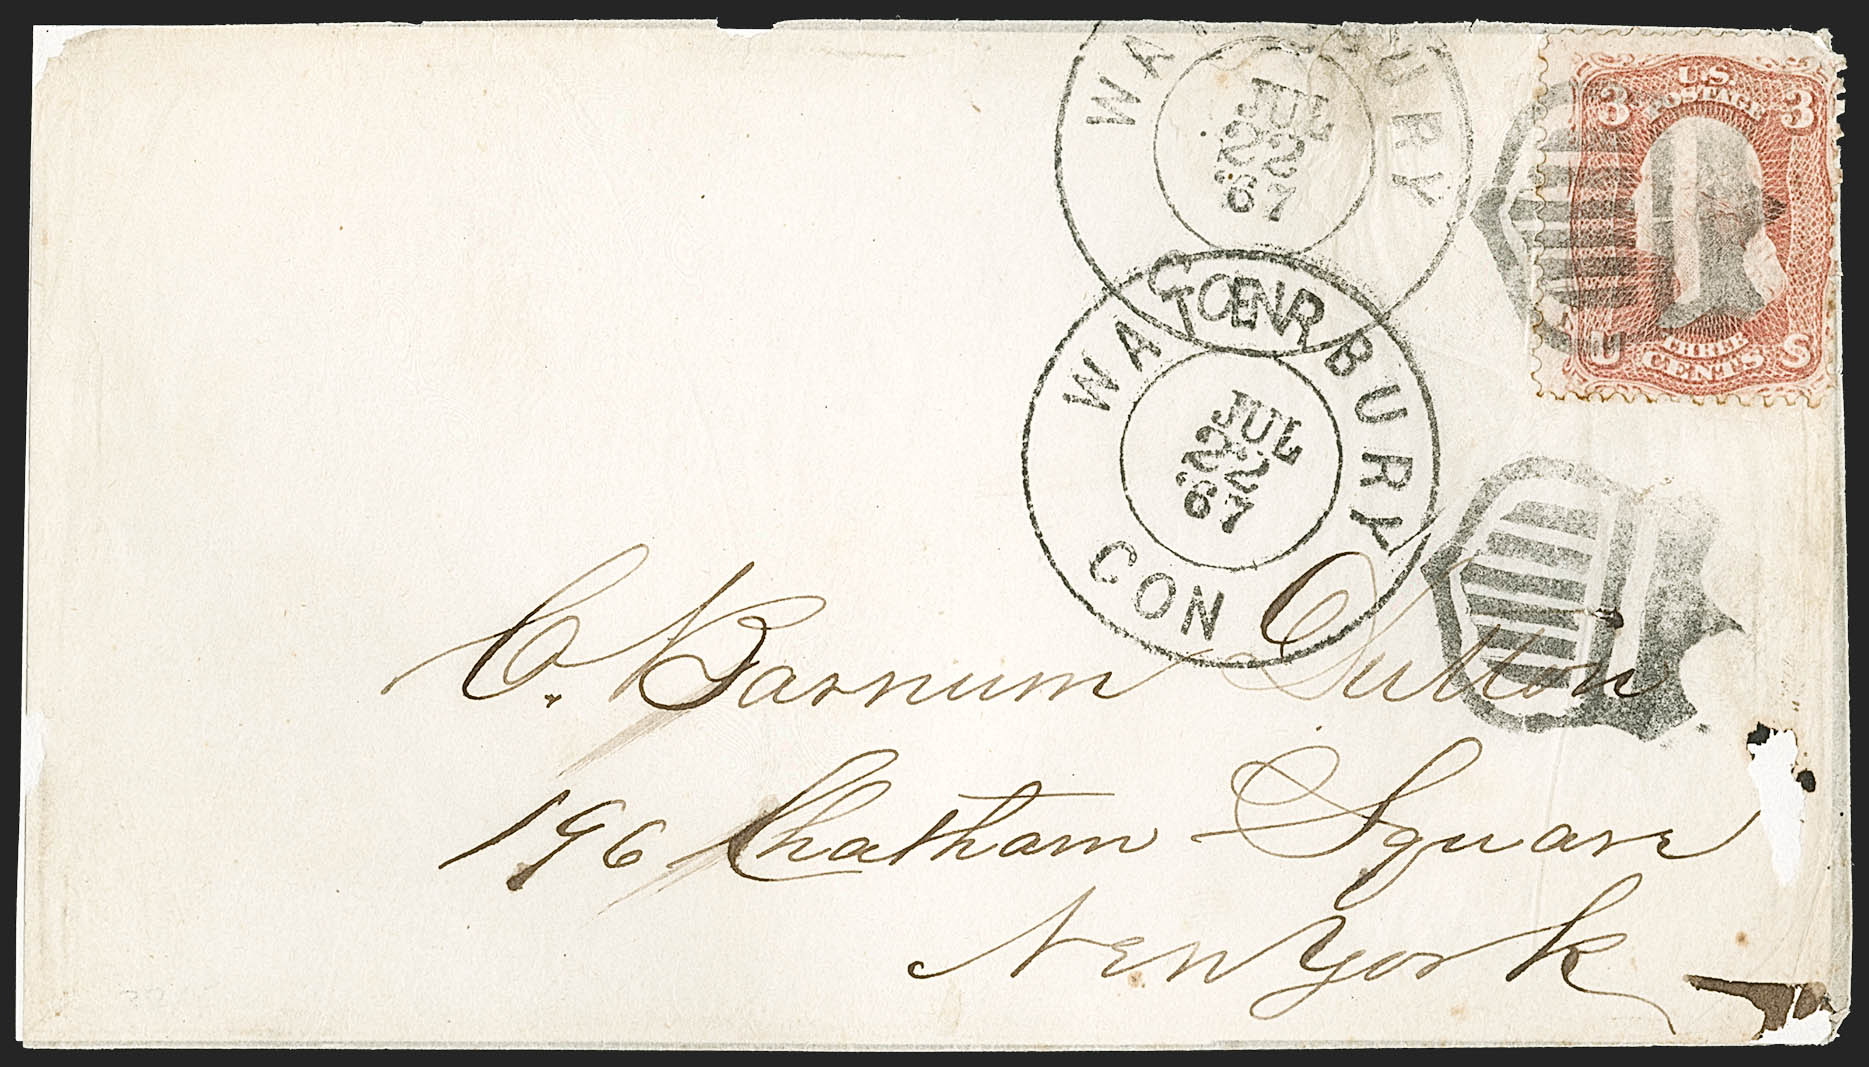 WATERBURY
JUL
22
'67
CON
U.S.
POSTAGE
3 3
U S
THREE
CENTS
WATERBURY
JUL
22
'67
CON
C. Barnum Sutton
196 Chatham Square
New York